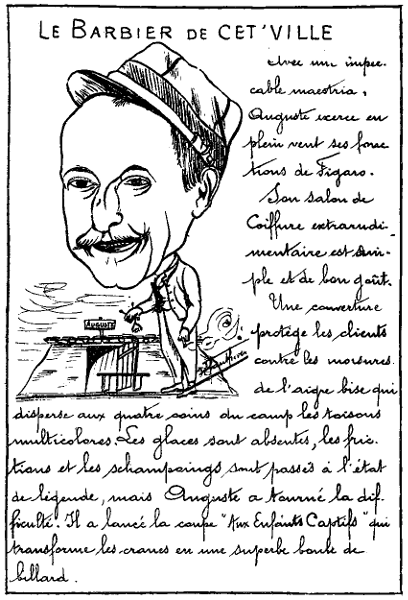 LE BARBIER DE CET'VILLE
Avec un impec-
cable maestria,
Auguste exerce en
plein vent ses fonc
tions de Figaro.
Son salon de
Coiffure extrarudi-
mentaire est sim-
ple et de bon goût.
Une couverture
protège les clients
contre les morsures
de l'aigre bise qui
disperse aux quatre coins du camp les toisons
multicolores. Les glaces sont absentes, les fric-
tions et les schampoings sont passés à l'état
de légende, mais Auguste a tourné la dif-
ficulté. Il a lancé la coupe "Aux Enfants Captifs" qui
transforme les cranes en une superbe boule de
billard.
AUGUSTE